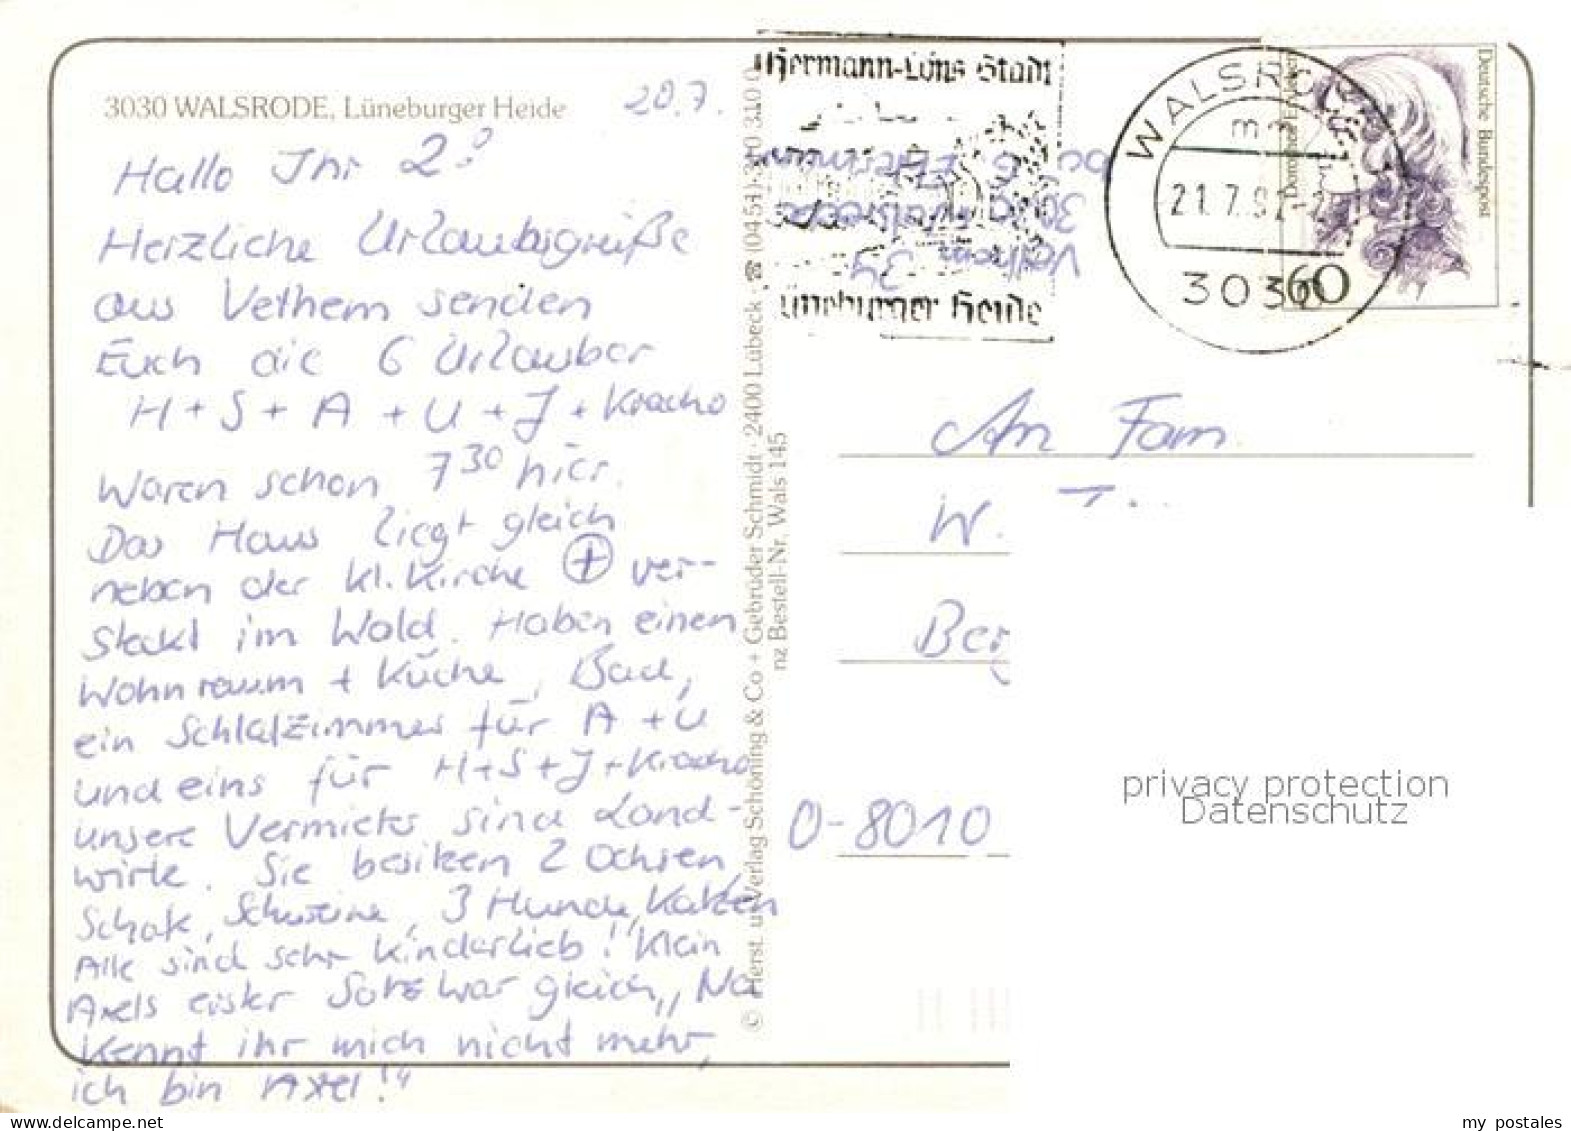 3030 WALSRODE, Lüneburger Heide
20.7.
Hallo Ihr 2!
Herzliche Urlaubsgrüße
aus Vethem senden
Euch die 6 Urlauber
H + S + A + U + J + Kracho
Waren schon 7³⁰ hier.
Das Haus liegt gleich
neben der kl. Kirche ver-
steckt im Wald. Haben einen
Wohnraum + Küche, Bad,
ein Schlafzimmer für A + U
und eins für H+S+J+Kracho
unsere Vermieter sind Land-
wirte. Sie besitzen 2 Ochsen,
Schafe, Schweine, 3 Hunde, Katzen
Alle sind sehr kinderlieb! Klein
Axels erster Satz war gleich „Na
kennt ihr mich nicht mehr,
ich bin Axel!"
© Herst. u. Verlag Schöning & Co + Gebrüder Schmidt · 2400 Lübeck · ☎ (0451) 310 310
nz Bestell-Nr. Wals 145
Hermann-Löns Stadt
Lüneburger Heide
bei
Walsrode
Vethem 34
WALSRODE
21.7.92
3030
Deutsche Bundespost
Dorothea Erxleben
60
An Fam.
W.
Ber
O-8010
privacy protection
Datenschutz
www.delcampe.net
my_postales